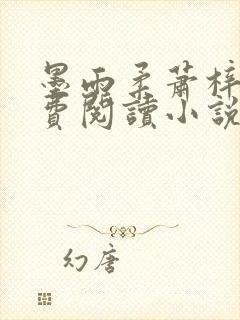 墨雨柔蕭梓
費閱讀小說
幻唐